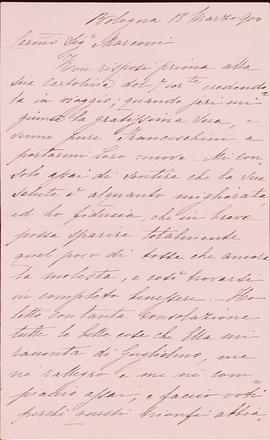 Bologna 18 Marzo 900
Carmo Sigr Marconi
Non risposi prima alla
sua Cartolina del 7 corte credendo-
la in viaggio, quando jeri mi
giunse la gratissima sua, e
venne pure Franceschini a
portarmi Loro nuove. Mi con
solo assai di sentire che la sua
salute è alquanto migliorata
ed ho fiducia, che in breve
possa sparire totalmente
quel poco di tosse che ancora
la molesta, e così trovarsi
in completo benessere. Ho
letto con tanta consolazione
tutte le belle cose che Ella mi
racconta di Guglielmo, me
ne rallegro e me ne com
piaccio assai, e faccio voti
perchè questi trionfi abbia